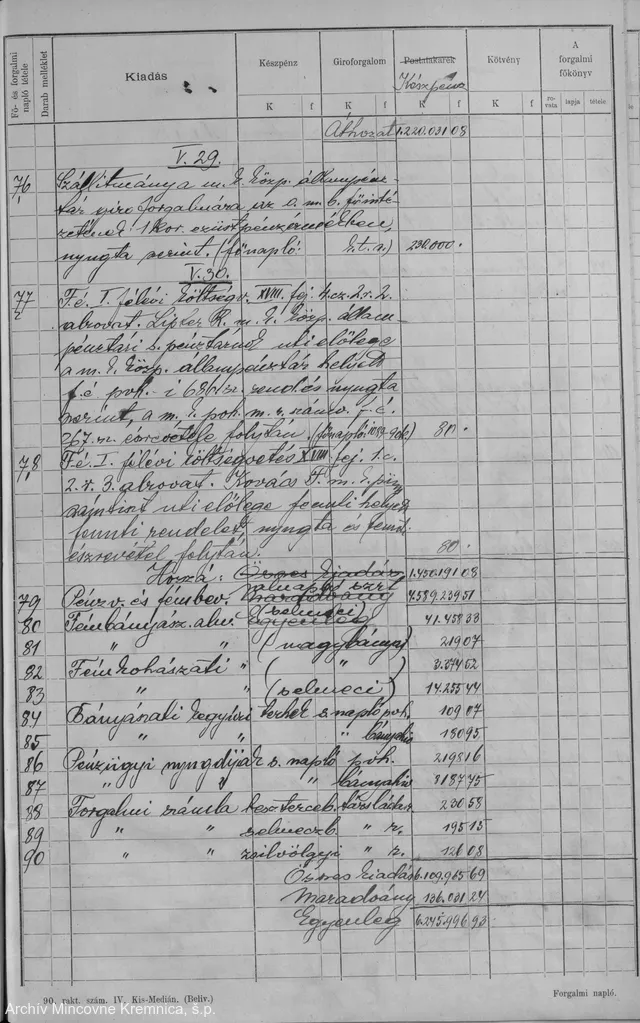 Fő- és forgalmi napló tétele
Darab melléklet
Kiadás
Készpénz
Giroforgalom
Postatakarék
Készpénz
Kötvény
A forgalmi főkönyv
K f K f K f K f
rovata lapja tétele
Áthozat 1.220.031 08
V. 29.
76 Szállitmány a m. k. közp. állampénz-
tár giro forgalmára az o. m. b. főinté-
zeténél 1 kor. ezüstpénzérmékben,
nyugta szerint. (főnapló: k. t. s.) 230.000 .
V. 30.
77 Fé. I. félévi költségv. XVIII. fej. 4. cz. 2. r. 2.
alrovat. Lipter R. m. k. közp. állam-
pénztári s. pénztárnok uti előlege
a m. k. közp. állampénztár helyett
f. é. poh. i 680 sz. rendes nyugta
szerint, a m. k. poh. m. r. számv. f. é.
267. sz. észrevétele folytán. (főnapló 80 .
78 Fé. I. félévi költségvetés XVIII. fej. 1. c.
2. r. 3. alrovat. Kovács F. m. k. pü.
számtiszt uti előlege fennti helyett
fennti rendelet, nyugta és fennt.
észrevétel folytán. 80 .
Hozzá: Összes kiadás 1.450.191 08
79 Pénzv. és fémbev. alnapló szt. 4.589.239 51
80 Fémbányász. aln. Egyenleg (selmeci) 41.458 33
81 " " (nagybányai) 219 07
82 Fémkohászati " ( " )
83 " " (selmeci) 14.255 44
84 Bányászati kegyúri terhek s. napló poh. 109 07
85 " " " bányakir 180 95
86 Pénzügyi nyugdíjak s. napló poh. 2198 16
87 " " " bányakir 8187 75
88 Forgalmi számla beszterceb. társládar 230 58
89 " " selmeczb. " r. 195 15
90 " " zsilvölgyi " r. 126 08
Összes kiadás 6.109.965 69
Maradvány 136.031 24
Egyenleg 6.245.996 93
90. rakt. szám. IV. Kis-Medián. (Beliv.)
Forgalmi napló.
Archív Mincovne Kremnica, š.p.